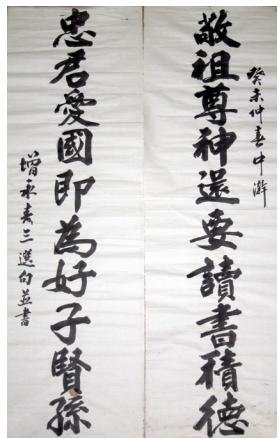 癸未仲春中澣
敬祖尊神還要讀書積德
忠君愛國即為好子賢孫
增永壽三選句並書